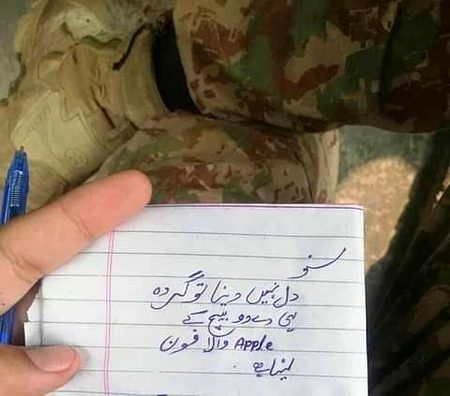 سنو
دل نہیں دینا تو گردہ
ہی دے دو بیچ کے
Apple والا فون
لینا ہے